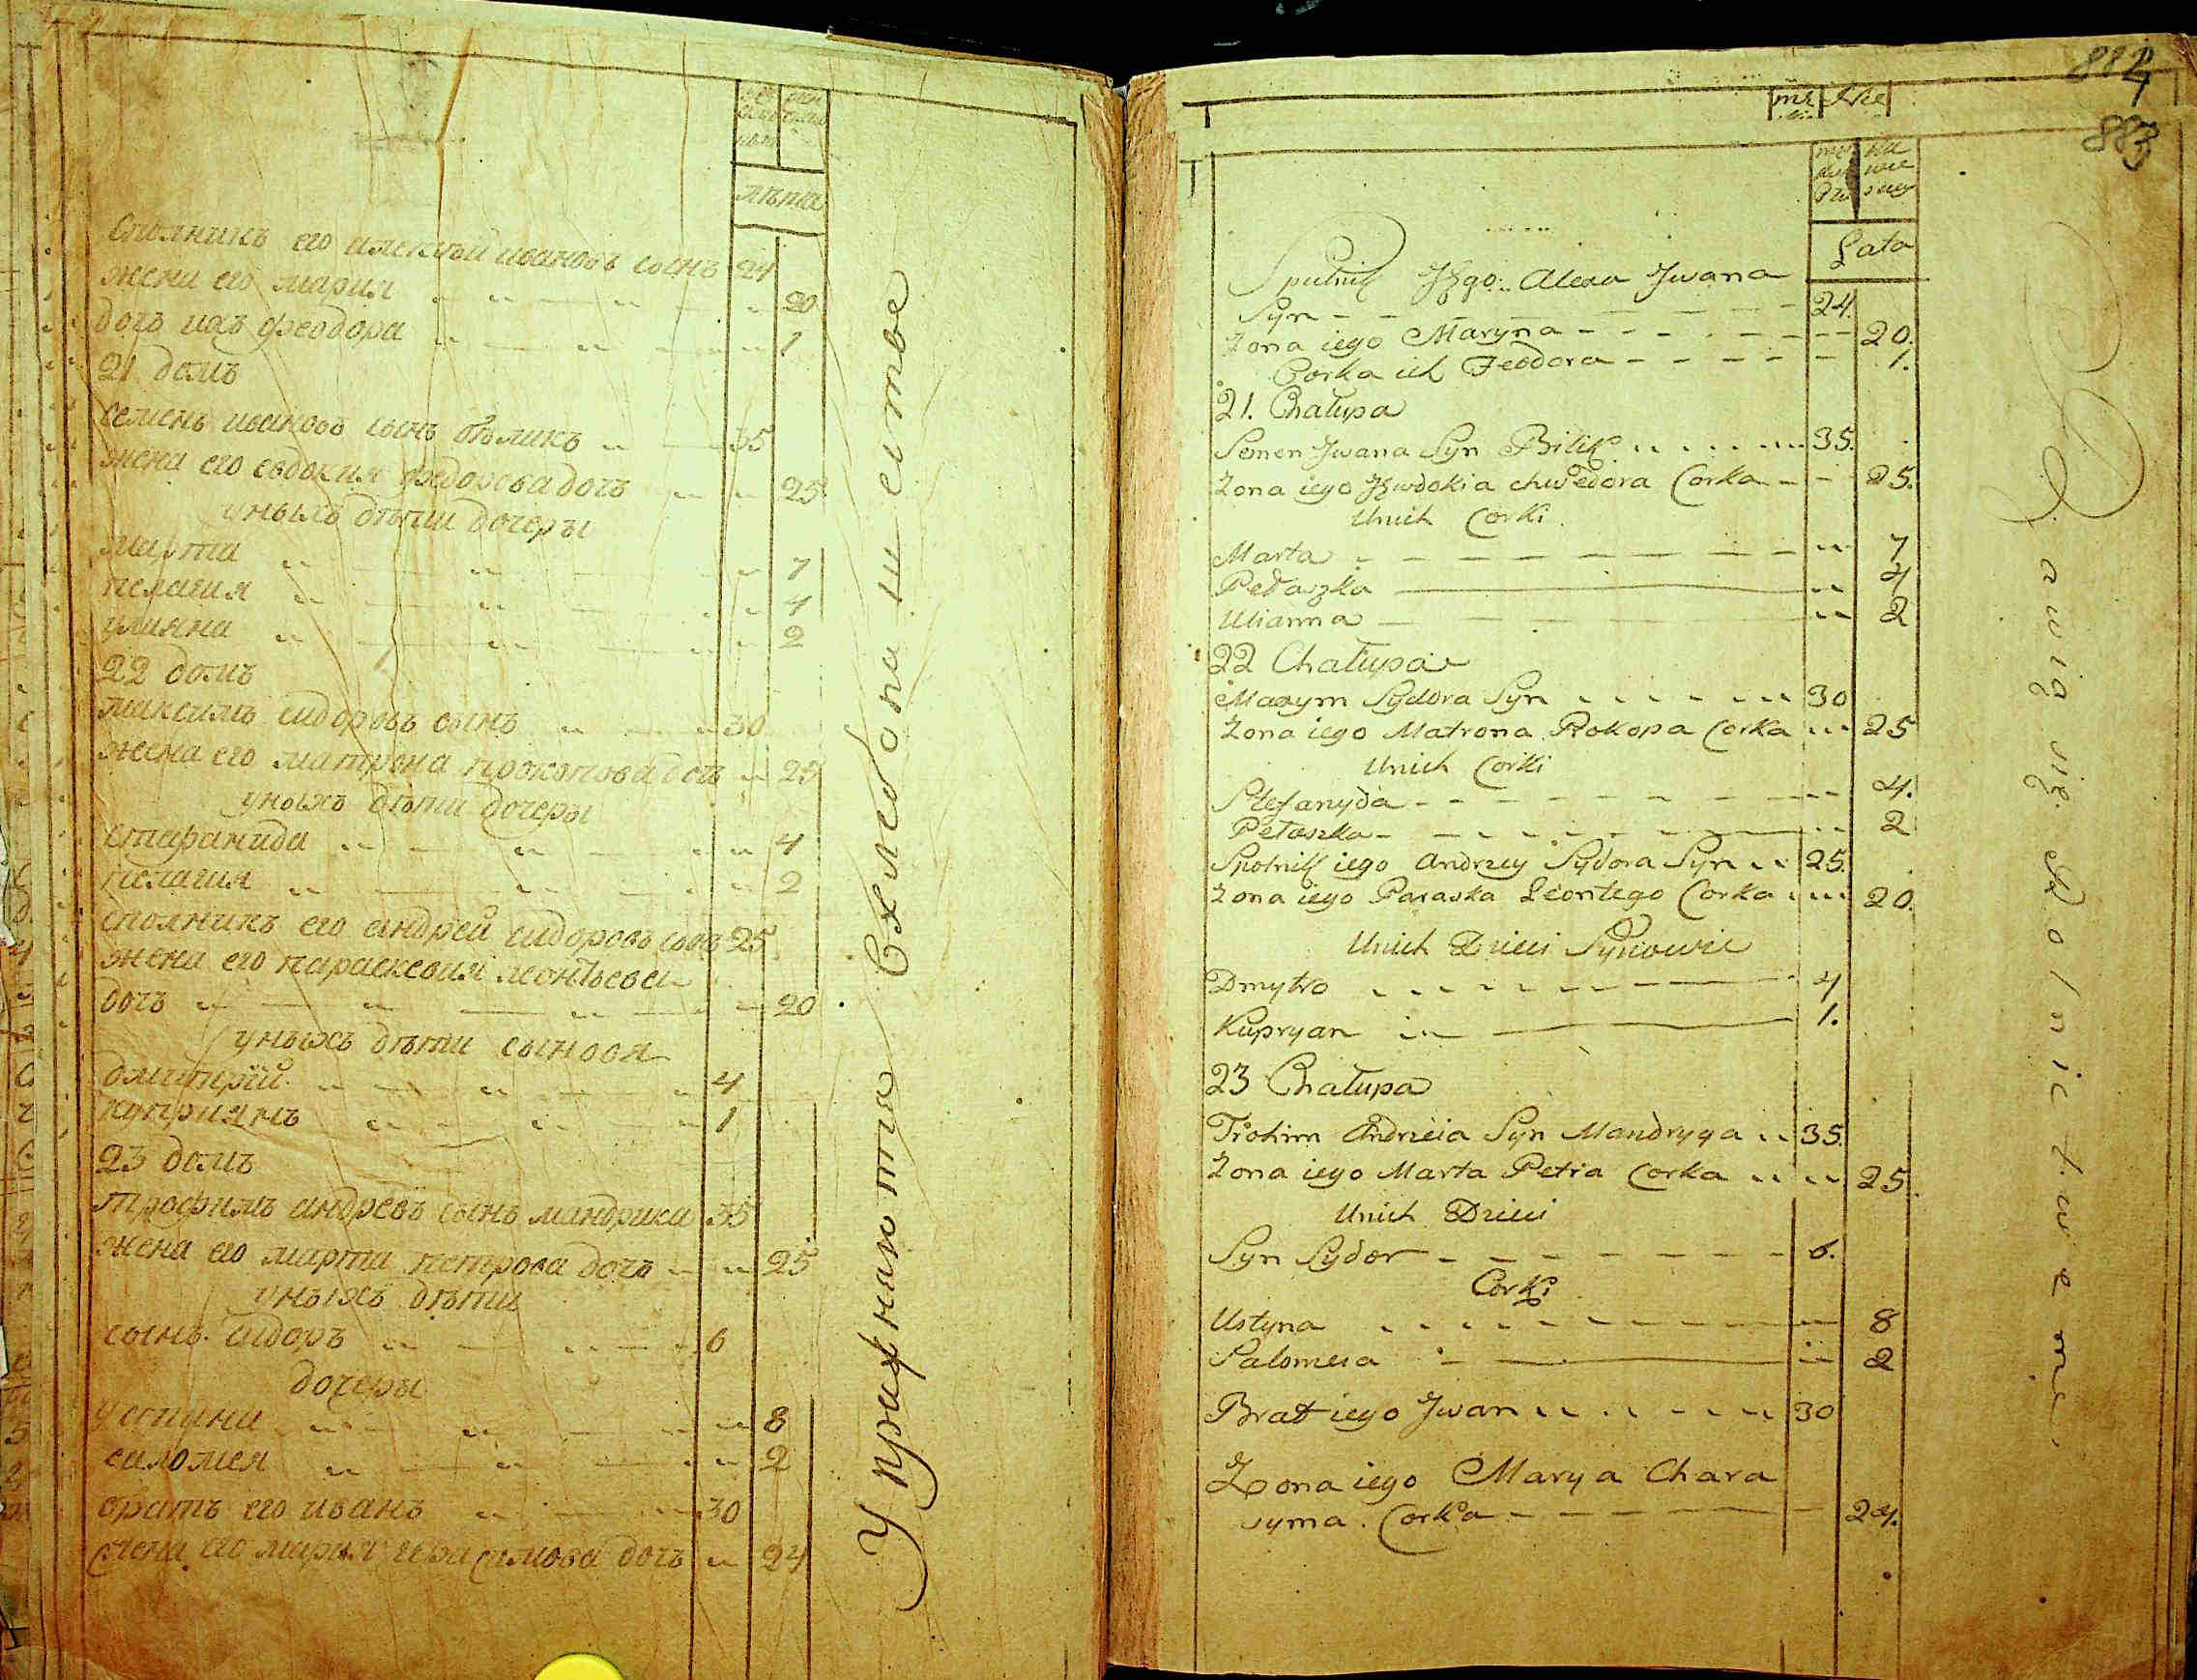 лѣта
Сполникъ его алексѣй ивановъ сынъ 24
жена его мария 20
дочь ихъ феодора 1
21 домъ
семенъ ивановъ сынъ бѣликъ 35
жена его евдокия федорова дочь 25
у ныхъ дѣти дочеры
марта 7
пелагия 4
улияна 2
22 домъ
максимъ сидоровъ сынъ 30
жена его матрона прокопова дочь 25
у ныхъ дѣти дочеры
стефанида 4
пелагия 2
сполникъ его андрей сидоровъ сынъ 25
жена его параскевия леонтьева
дочь 20
у ныхъ дѣти сыновя
димитрий 4
куприянъ 1
23 домъ
трофимъ андреевъ сынъ мандрика 35
жена его марта петрова дочь 25
у ныхъ дѣти
сынъ сидоръ 6
дочеры
устина 8
саломея 2
братъ его иванъ 30
жена его мария герасимова дочь 24
Упражняютца в хлебопашестве
884
883
Lata
Spulnik Jego Alexa Jwana
Syn 24.
Zona iego Maryna 20.
Corka ich Feodora 1.
21. Chałupa
Semen Jwana Syn Bilik 35.
Zona iego Jewdokia chwedora Corka 25.
Unich Corki
Marta 7
Pełaszka 4
Ulianna 2
22 Chałupa
Maxym Sydora Syn 30
Zona iego Matrona Prokopa Corka 25
Unich Corki
Stefanyda 4.
Pełaszka 2
Spolnik iego Andrzey Sydora Syn 25.
Zona iego Paraska Leontego Corka 20.
Unich Dzieci Synowie
Dmytro 4
Kupryan 1.
23 Chałupa
Trohim Andrzeia Syn Mandryga 35.
Zona iego Marta Petra Corka 25.
Unich Dzieci
Syn Sydor 6.
Corki
Ustyna 8
Salomeia 2
Brat iego Jwan 30
Zona iego Marya Chara
syma Corka 24.
Bawią się Rolnictwem